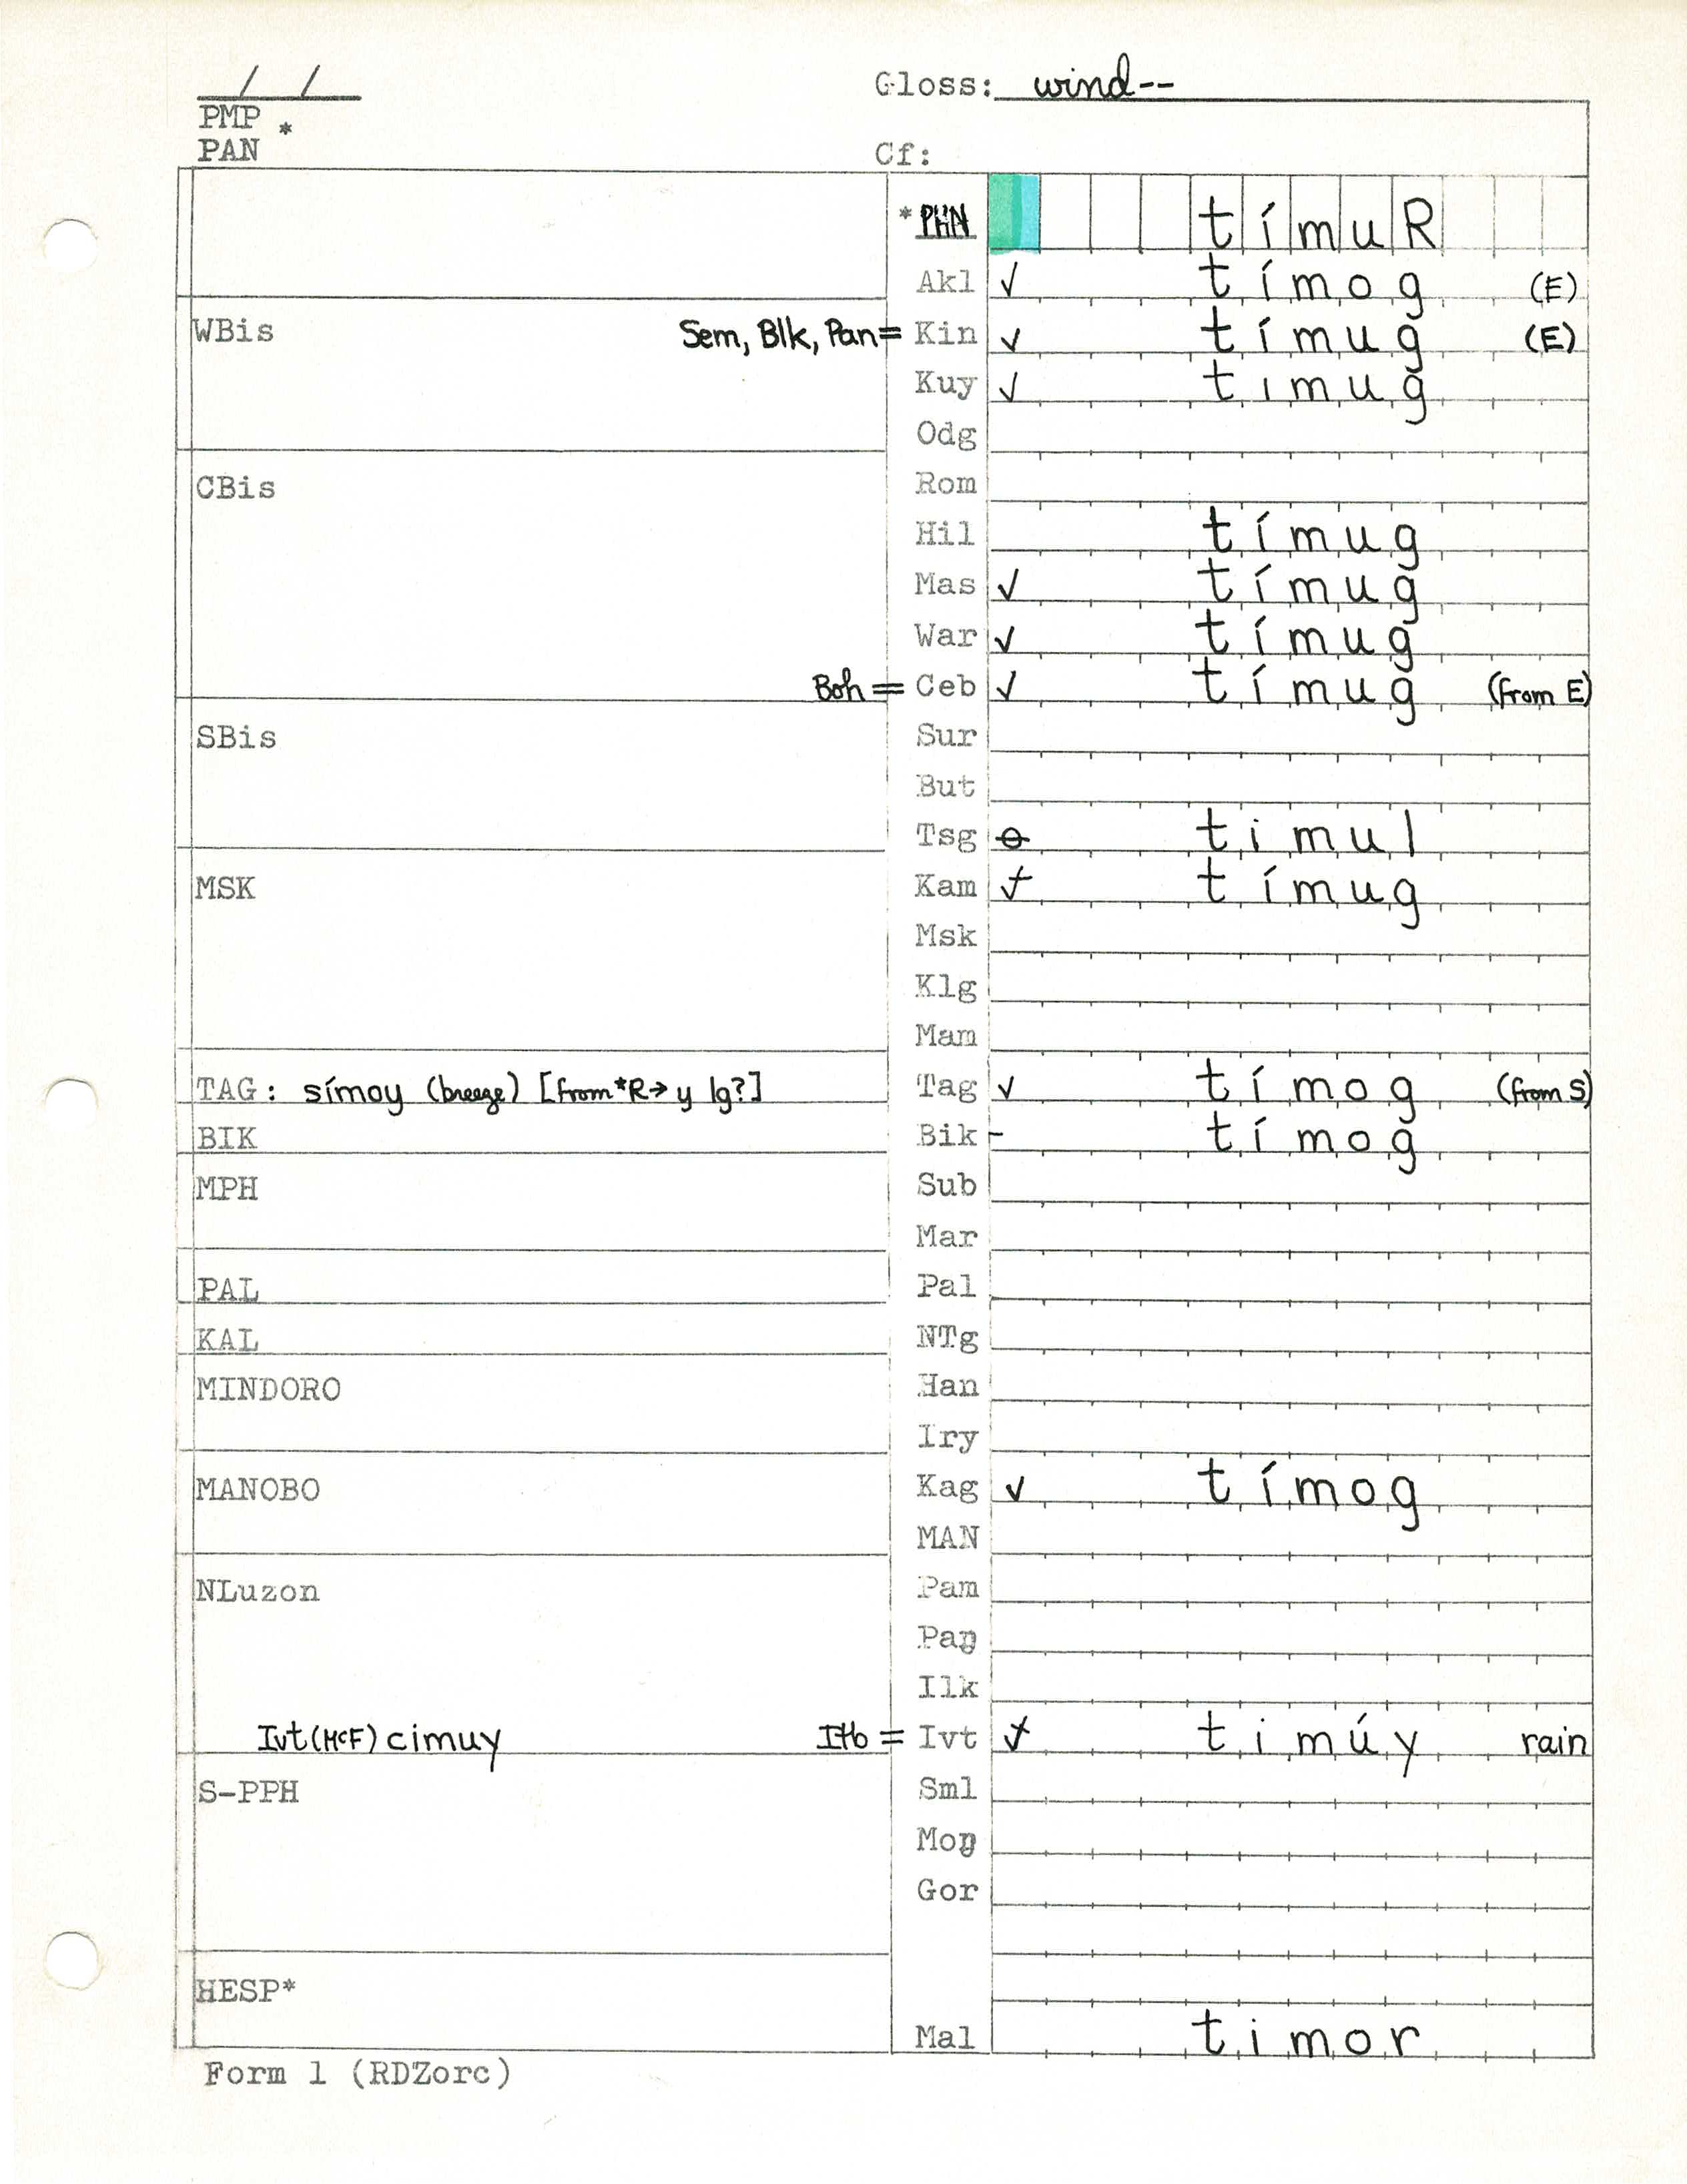 Gloss: wind--
PMP *
PAN
Cf:
*PHN tímuR
Akl ✓ tímog (E)
WBis Sem, Blk, Pan= Kin ✓ tímug (E)
Kuy ✓ timug
Odg
CBis Rom
Hil tímug
Mas ✓ tímug
War ✓ tímug
Boh = Ceb ✓ tímug (from E)
SBis Sur
But
Tsg timul
MSK Kam tímug
Msk
Klg
Mam
TAG: símoy (breeze) [from *R→ y lg?] Tag ✓ tímog (from S)
BIK Bik - tímog
MPH Sub
Mar
PAL Pal
KAL NTg
MINDORO Han
Iry
MANOBO Kag ✓ tímog
MAN
NLuzon Pam
Paŋ
Ilk
Ivt (McF) cimuy Itb = Ivt timúy rain
S-PPH Sml
Moŋ
Gor
HESP*
Mal timor
Form 1 (RDZorc)